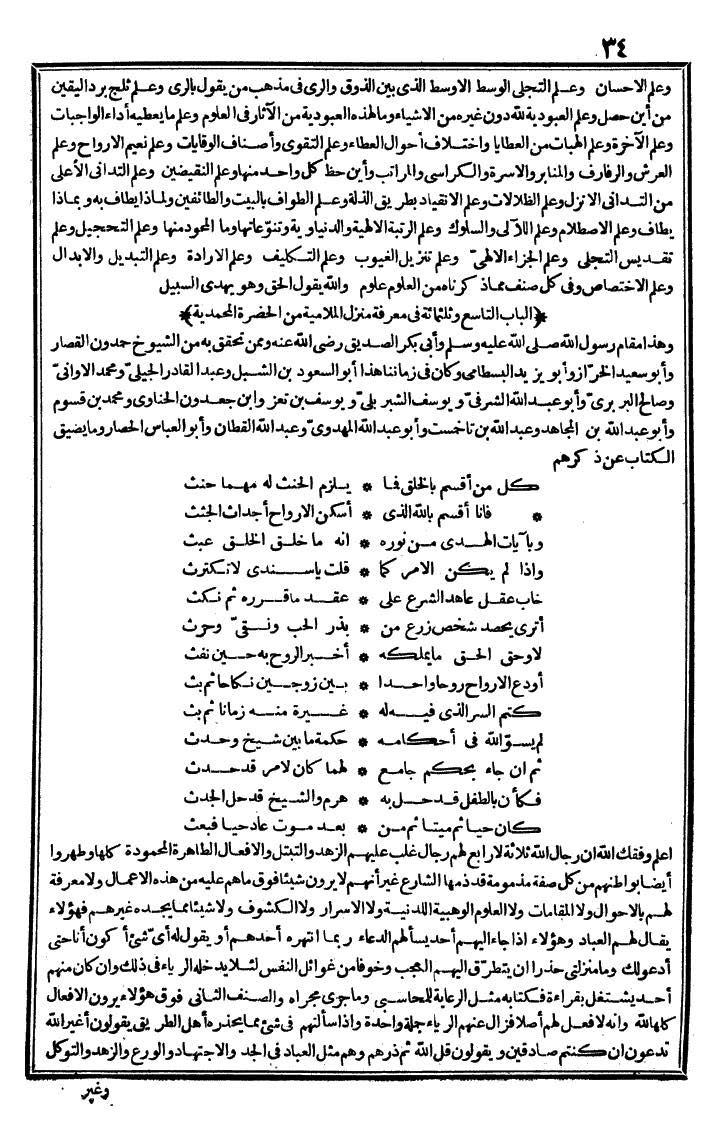 ٣٤
وعلم الاحسان وعلم التجلى الوسط الاوسط الذى بين الذوق والرى فى مذهب من يقول بالرى وعلم ثلج برد اليقين
من أين حصل وعلم العبودية لله دون غيره من الاشياء وما لهذه العبودية من الآثار فى العلوم وعلم ما يعطيه أداء الواجبات
وعلم الآخرة وعلم الهبات من العطايا واختلاف أحوال العطاء وعلم التقوى وأصناف الوقايات وعلم نعيم الارواح وعلم
العرش والرفارف والمنابر والاسرة والكراسى والمراتب وأين حظ كل واحد منها وعلم النقيضين وعلم التدانى الأعلى
من التدانى الانزل وعلم الظلالات وعلم الانقياد بطريق الذلة وعلم الطواف بالبيت والطائفين ولماذا يطاف به وبماذا
يطاف وعلم الاصطلام وعلم اللآلى والسلوك وعلم الرتبة الالهية والدنياوية وتنوّعاتها وما المحمود منها وعلم التحجيل وعلم
تقديس التجلى وعلم الجزاء الالهىّ وعلم تنزيل الغيوب وعلم التكليف وعلم الارادة وعلم التبديل والابدال
وعلم الاختصاص وفى كل صنف مما ذكرناه من العلوم علوم والله يقول الحق وهو يهدى السبيل
﴿الباب التاسع وثلثمائة فى معرفة منزل الملامية من الحضرة المحمدية﴾
وهذا مقام رسول الله صلى الله عليه وسلم وأبى بكر الصديق رضى الله عنه وممن تحقق به من الشيوخ حمدون القصار
وأبو سعيد الخرّاز وأبو يزيد البسطامى وكان فى زماننا هذا أبو السعود بن الشبل وعبد القادر الجيلىّ ومحمد الاوانىّ
وصالح البربرىّ وأبو عبد الله الشرفىّ ويوسف الشبربلىّ ويوسف بن تعز وابن جعدون الحناوى ومحمد بن قسوم
وأبو عبد الله بن المجاهد وعبد الله بن تاخمست وأبو عبد الله المهدوىّ وعبد الله القطان وأبو العباس الحصار وما يضيق
الكتاب عن ذكرهم
كل من أقسم بالخلق فما * يلزم الحنث له مهما حنث
* فانا أقسم بالله الذى * أسكن الارواح أجداث الجثث
وبآيات الهدى من نوره * انه ما خلق الخلق عبث
واذا لم يكن الامر كما * قلت ياسندى لا تكترث
خاب عقل عاهد الشرع على * عقد ما قرره ثم نكث
أترى يحصد شخص زرع من * بذر الحب ونقىّ وحرث
لا وحق الحق ما يملكه * أخبر الروح به حين نفث
أودع الارواح روحا واحدا * بين زوجين نكاحا ثم بث
كتم السر الذى فيه له * غيرة منه زمانا ثم بث
لم يسوّ الله فى أحكامه * حكمة ما بين شيخ وحدث
ثم ان جاء بحكم جامع * لهما كان لامر قد حدث
فكأن بالطفل قد حل به * هرم والشيخ قد حل الجدث
كان حيا ثم ميتا ثم من * بعد موت عاد حيا فبعث
اعلم وفقك الله ان رجال الله ثلاثة لا رابع لهم رجال غلب عليهم الزهد والتبتل والافعال الطاهرة المحمودة كلها وطهروا
أيضا بواطنهم من كل صفة مذمومة قد ذمها الشارع غير أنهم لا يرون شيئا فوق ما هم عليه من هذه الاعمال ولا معرفة
لهم بالاحوال ولا المقامات ولا العلوم الوهبية اللدنية ولا الاسرار ولا الكشوف ولا شيئا مما يجده غيرهم فهؤلاء
يقال لهم العباد وهؤلاء اذا جاء اليهم أحد يسألهم الدعاء ربما انتهره أحدهم أو يقول له أىّ شئ أكون أنا حتى
أدعو لك وما منزلتى حذرا ان يتطرّق اليهم العجب وخوفا من غوائل النفس لئلا يدخله الرياء فى ذلك وان كان منهم
أحد يشتغل بقراءة فكتابه مثل الرعاية للمحاسبى وما جرى مجراه والصنف الثانى فوق هؤلاء يرون الافعال
كلها لله وانه لا فعل لهم أصلا فزال عنهم الرياء جملة واحدة واذا سألتهم فى شئ مما يحذره أهل الطريق يقولون أغير الله
تدعون ان كنتم صادقين ويقولون قل الله ثم ذرهم وهم مثل العباد فى الجد والاجتهاد والورع والزهد والتوكل
وغير